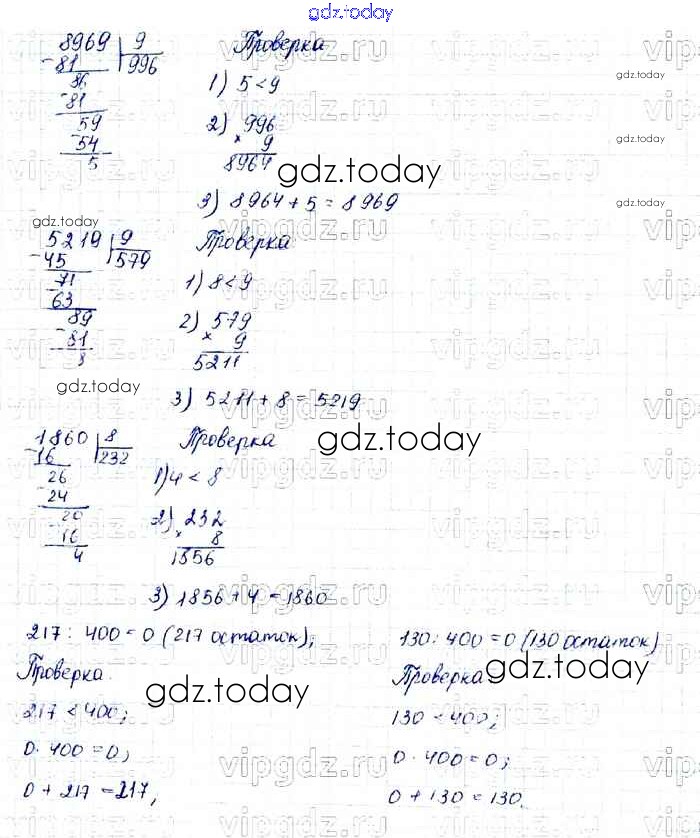 gdz.today
8969 9
-81 996
86
-81
59
-54
5
Проверка
1) 5<9
2) 996
× 9
8964
3) 8964+5=8969
5219 9
-45 579
71
-63
89
-81
8
Проверка
1) 8<9
2) 579
× 9
5211
3) 5211+8=5219
1860 8
-16 232
26
-24
20
-16
4
Проверка
1) 4<8
2) 232
× 8
1856
3) 1856+4=1860
217: 400=0 (217 остаток);
Проверка
217<400;
0·400=0;
0+217=217,
130:400=0 (130 остаток)
Проверка
130<400;
0·400=0;
0+130=130.
gdz.today
gdz.today
gdz.today
gdz.today
gdz.today
gdz.today
gdz.today
gdz.today
gdz.today
vipgdz.ru